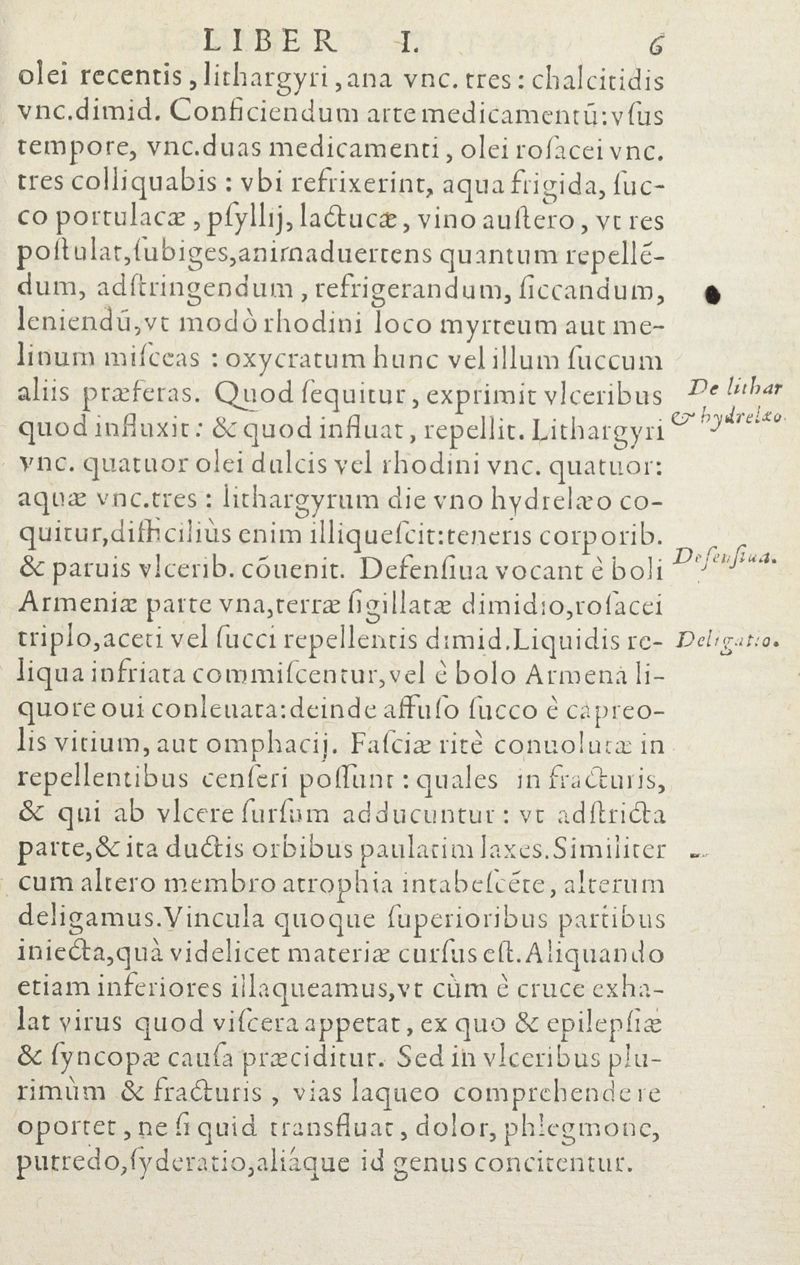 LIBER I. 6
olei recentis, lithargyri, ana vnc. tres: chalcitidis
vnc.dimid. Conficiendum arte medicamentū:vſus
tempore, vnc.duas medicamenti, olei roſacei vnc.
tres colliquabis: vbi refrixerint, aqua frigida, ſuc-
co portulacæ, pſyllij, lactucæ, vino auſtero, vt res
poſtulat,ſubiges,animaduertens quantum repellē-
dum, adſtringendum, refrigerandum, ſiccandum,
leniendū,vt modò rhodini loco myrteum aut me-
linum miſceas: oxycratum hunc vel illum ſuccum
aliis præferas. Quod ſequitur, exprimit vlceribus
De lithar
quod influxit: & quod influat, repellit. Lithargyri
& hydrelæo.
vnc. quatuor olei dulcis vel rhodini vnc. quatuor:
aquæ vnc.tres: lithargyrum die vno hydrelæo co-
quitur,difficiliùs enim illiqueſcit:teneris corporib.
& paruis vlcerib. cōuenit. Defenſiua vocant è boli
Defenſiua.
Armeniæ parte vna,terræ ſigillatæ dimidio,roſacei
triplo,aceti vel ſucci repellentis dimid.Liquidis re-
Deligatio.
liqua infriata commiſcentur,vel è bolo Armena li-
quore oui conleuata:deinde affuſo ſucco è capreo-
lis vitium, aut omphacij. Faſciæ ritè conuolutæ in
repellentibus cenſeri poſſunt: quales in fracturis,
& qui ab vlcere ſurſum adducuntur: vt adſtricta
parte,& ita ductis orbibus paulatim laxes.Similiter
cum altero membro atrophia intabeſcéte, alterum
deligamus.Vincula quoque ſuperioribus partibus
iniecta,quà videlicet materiæ curſus eſt.Aliquando
etiam inferiores illaqueamus,vt cùm è cruce exha-
lat virus quod viſcera appetat, ex quo & epilepſiæ
& ſyncopæ cauſa præciditur. Sed in vlceribus plu-
rimùm & fracturis, vias laqueo comprehendere
oportet, ne ſi quid transfluat, dolor, phlegmone,
putredo,ſyderatio,aliáque id genus concitentur.